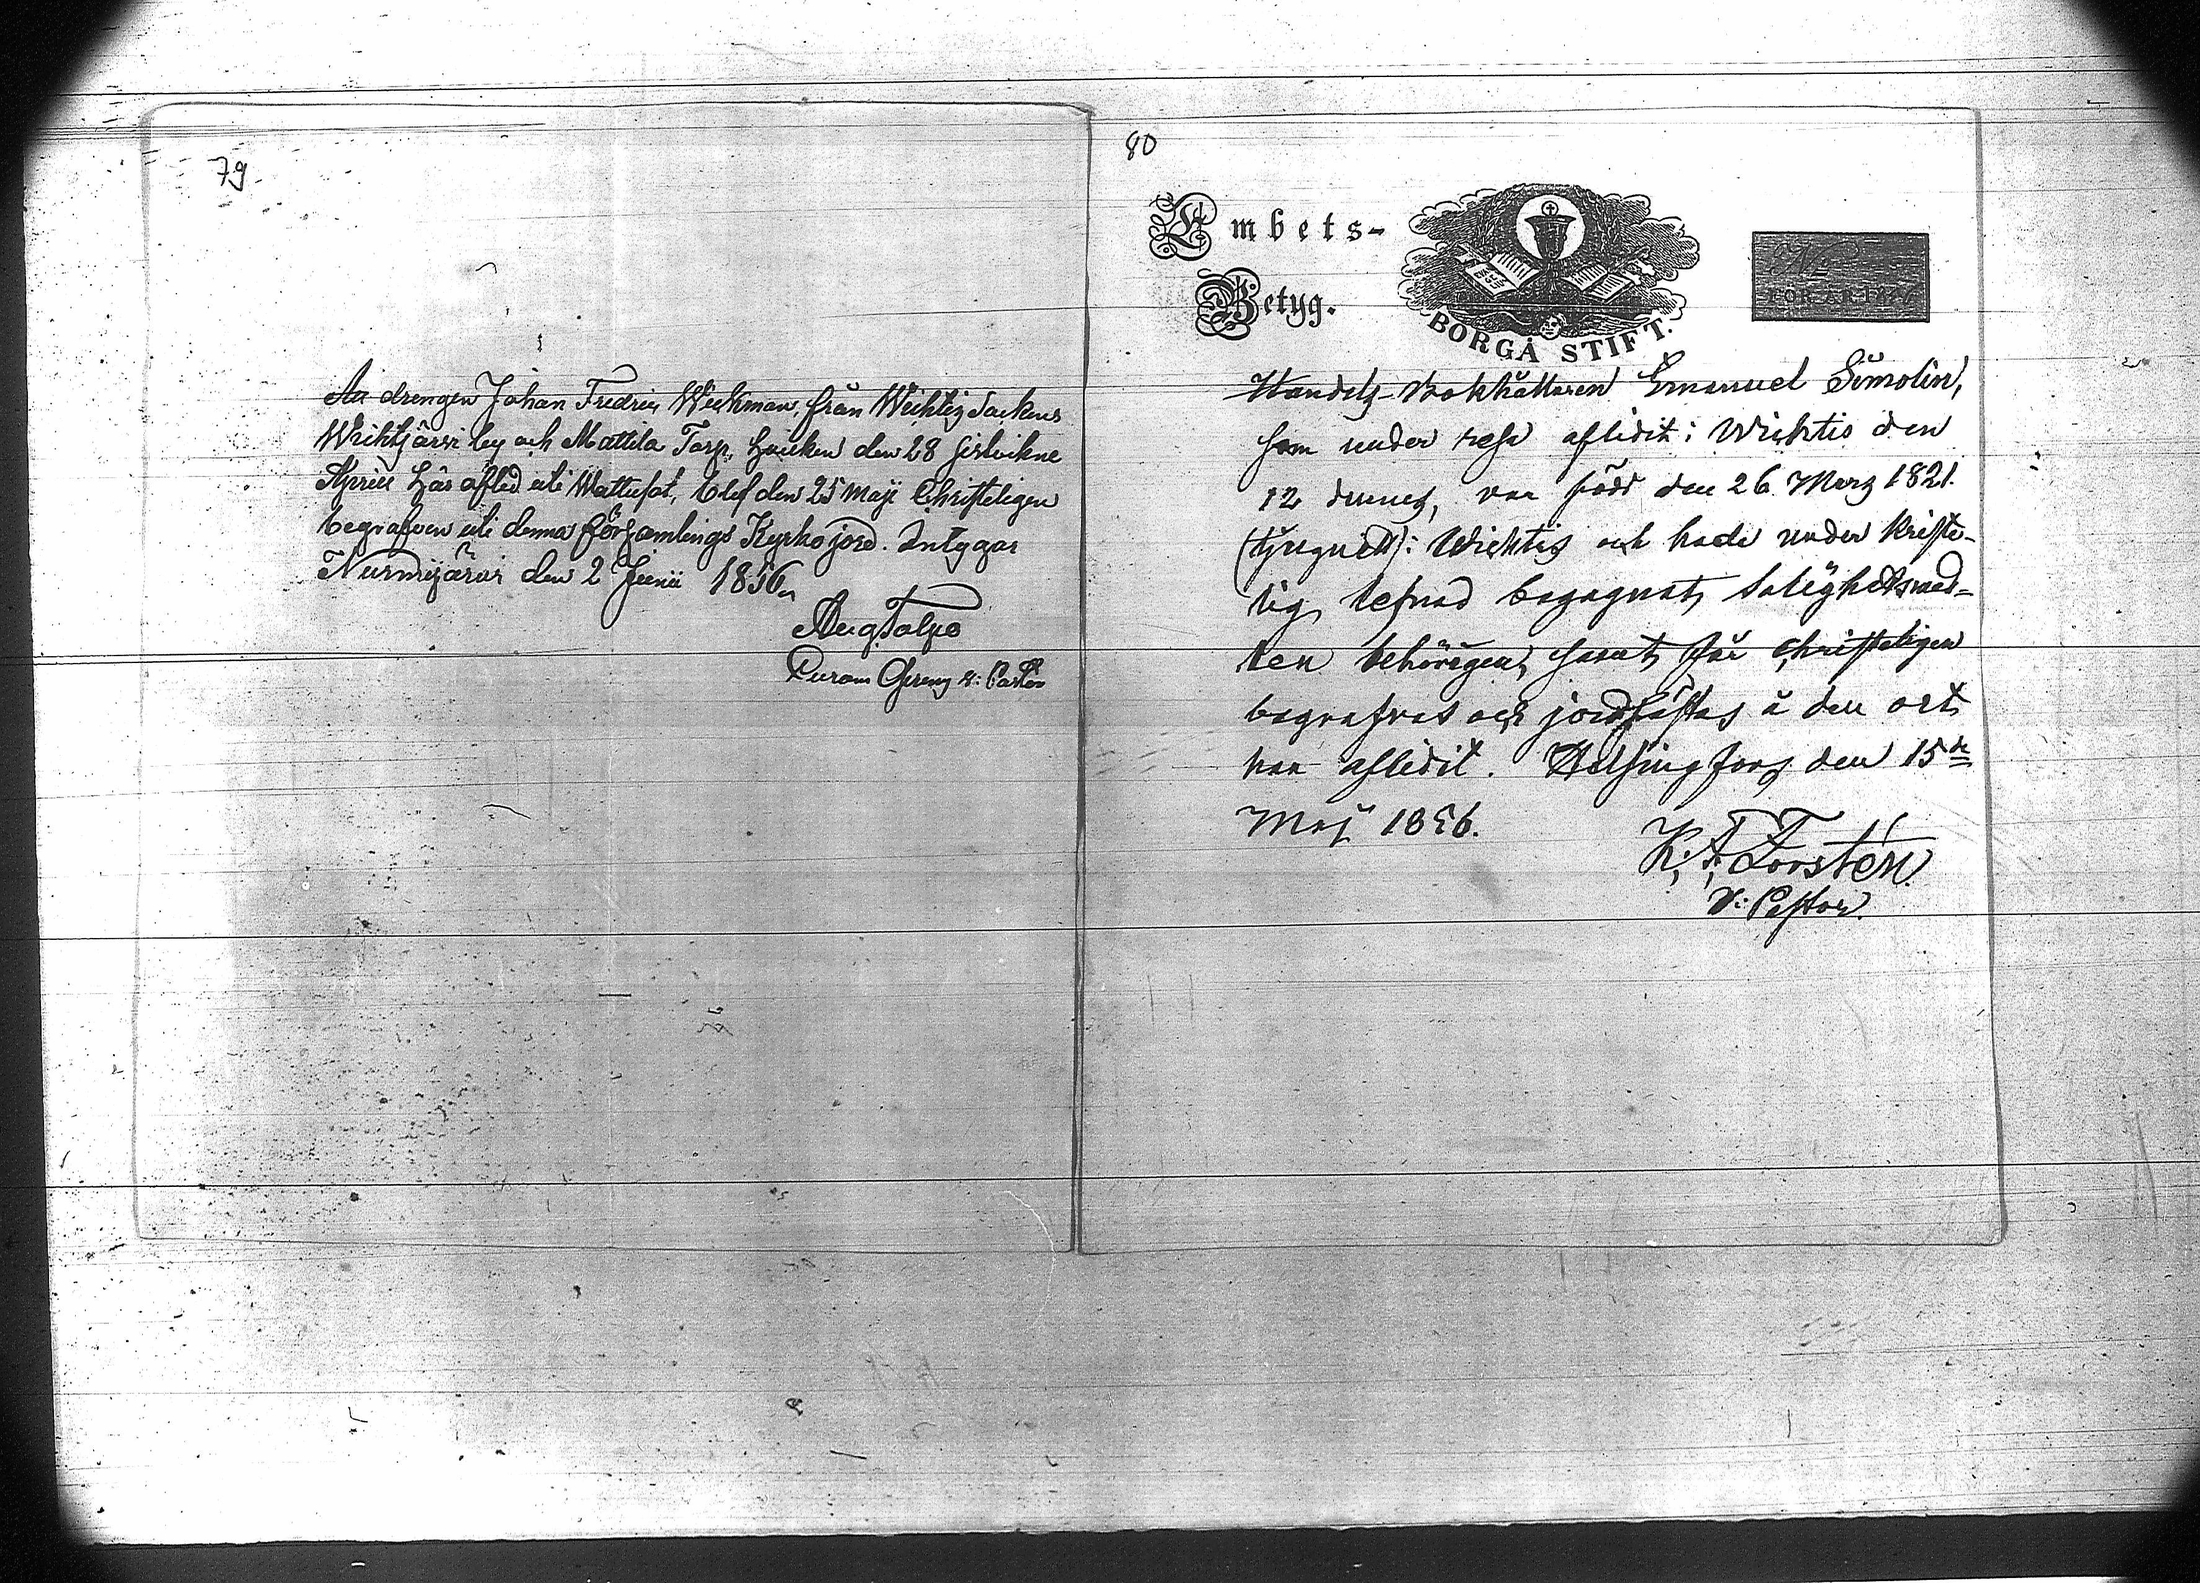 79.
At drengen Johan Fredric Weckman, från Wichtis Sockens
Wichtjärvi by och Mattila Torp, hvilken den 28 sistvikne
Aprill här afled uti Wattusot, blef den 25 Maji Christeligen
begrafven uti denna Församlings Kyrko jord. Intygar
Nurmijärvi den 2 Junii 1856.
Aug Talpo
v: Pastor
80
Embets-
Betyg.
BORGÅ STIFT.
No
FÖR ÅR 18
Handels-Bokhållaren Emanuel Simolin,
som under resa aflidit i Wichtis den
12 dennes, var född den 26 Mars 1821.
(tjuguett) i Wichtis och hade under kriste-
lig lefnad begagnat salighetsmed-
len behörigen, samt får christeligen
begrafvas och jordfästas å den ort
han aflidit. Helsingfors den 15de
Maj 1856.
K. F. Forstén.
V: Pastor.